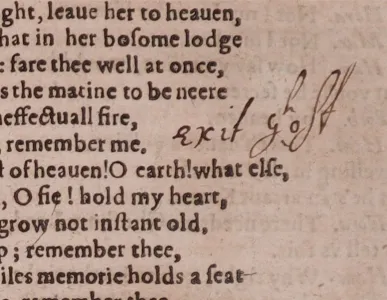 ght, leaue her to heauen,
hat in her boſome lodge
: fare thee well at once,
s the matine to be neere
neffectuall fire,
, remember me.
exit ghoſt
t of heauen!O earth!what elſe,
, O fie ! hold my heart,
grow not inſtant old,
p ; remember thee,
iles memorie holds a ſeat
remember thee